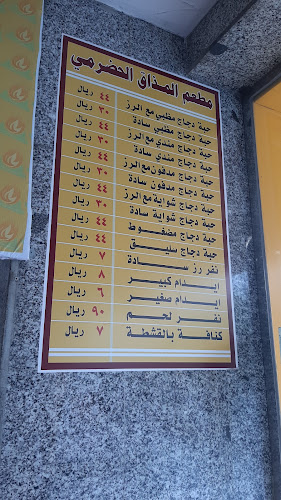 مطعم المذاق الحضرمي
حبة دجاج مظبي مع الرز ٤٤ ريال
حبة دجاج مظبي سادة ٣٠ ريال
حبة دجاج مندي مع الرز ٤٤ ريال
حبة دجاج مندي سادة ٣٠ ريال
حبة دجاج مدفون مع الرز ٤٤ ريال
حبة دجاج مدفون سادة ٣٠ ريال
حبة دجاج شواية مع الرز ٤٤ ريال
حبة دجاج شواية سادة ٣٠ ريال
حبة دجاج مضغوط ٤٤ ريال
حبة دجاج سليق ٤٤ ريال
نفر رز سادة ٧ ريال
إيدام كبير ٨ ريال
إيدام صغير ٦ ريال
نفر لحم ٩٠ ريال
كنافة بالقشطة ٧ ريال